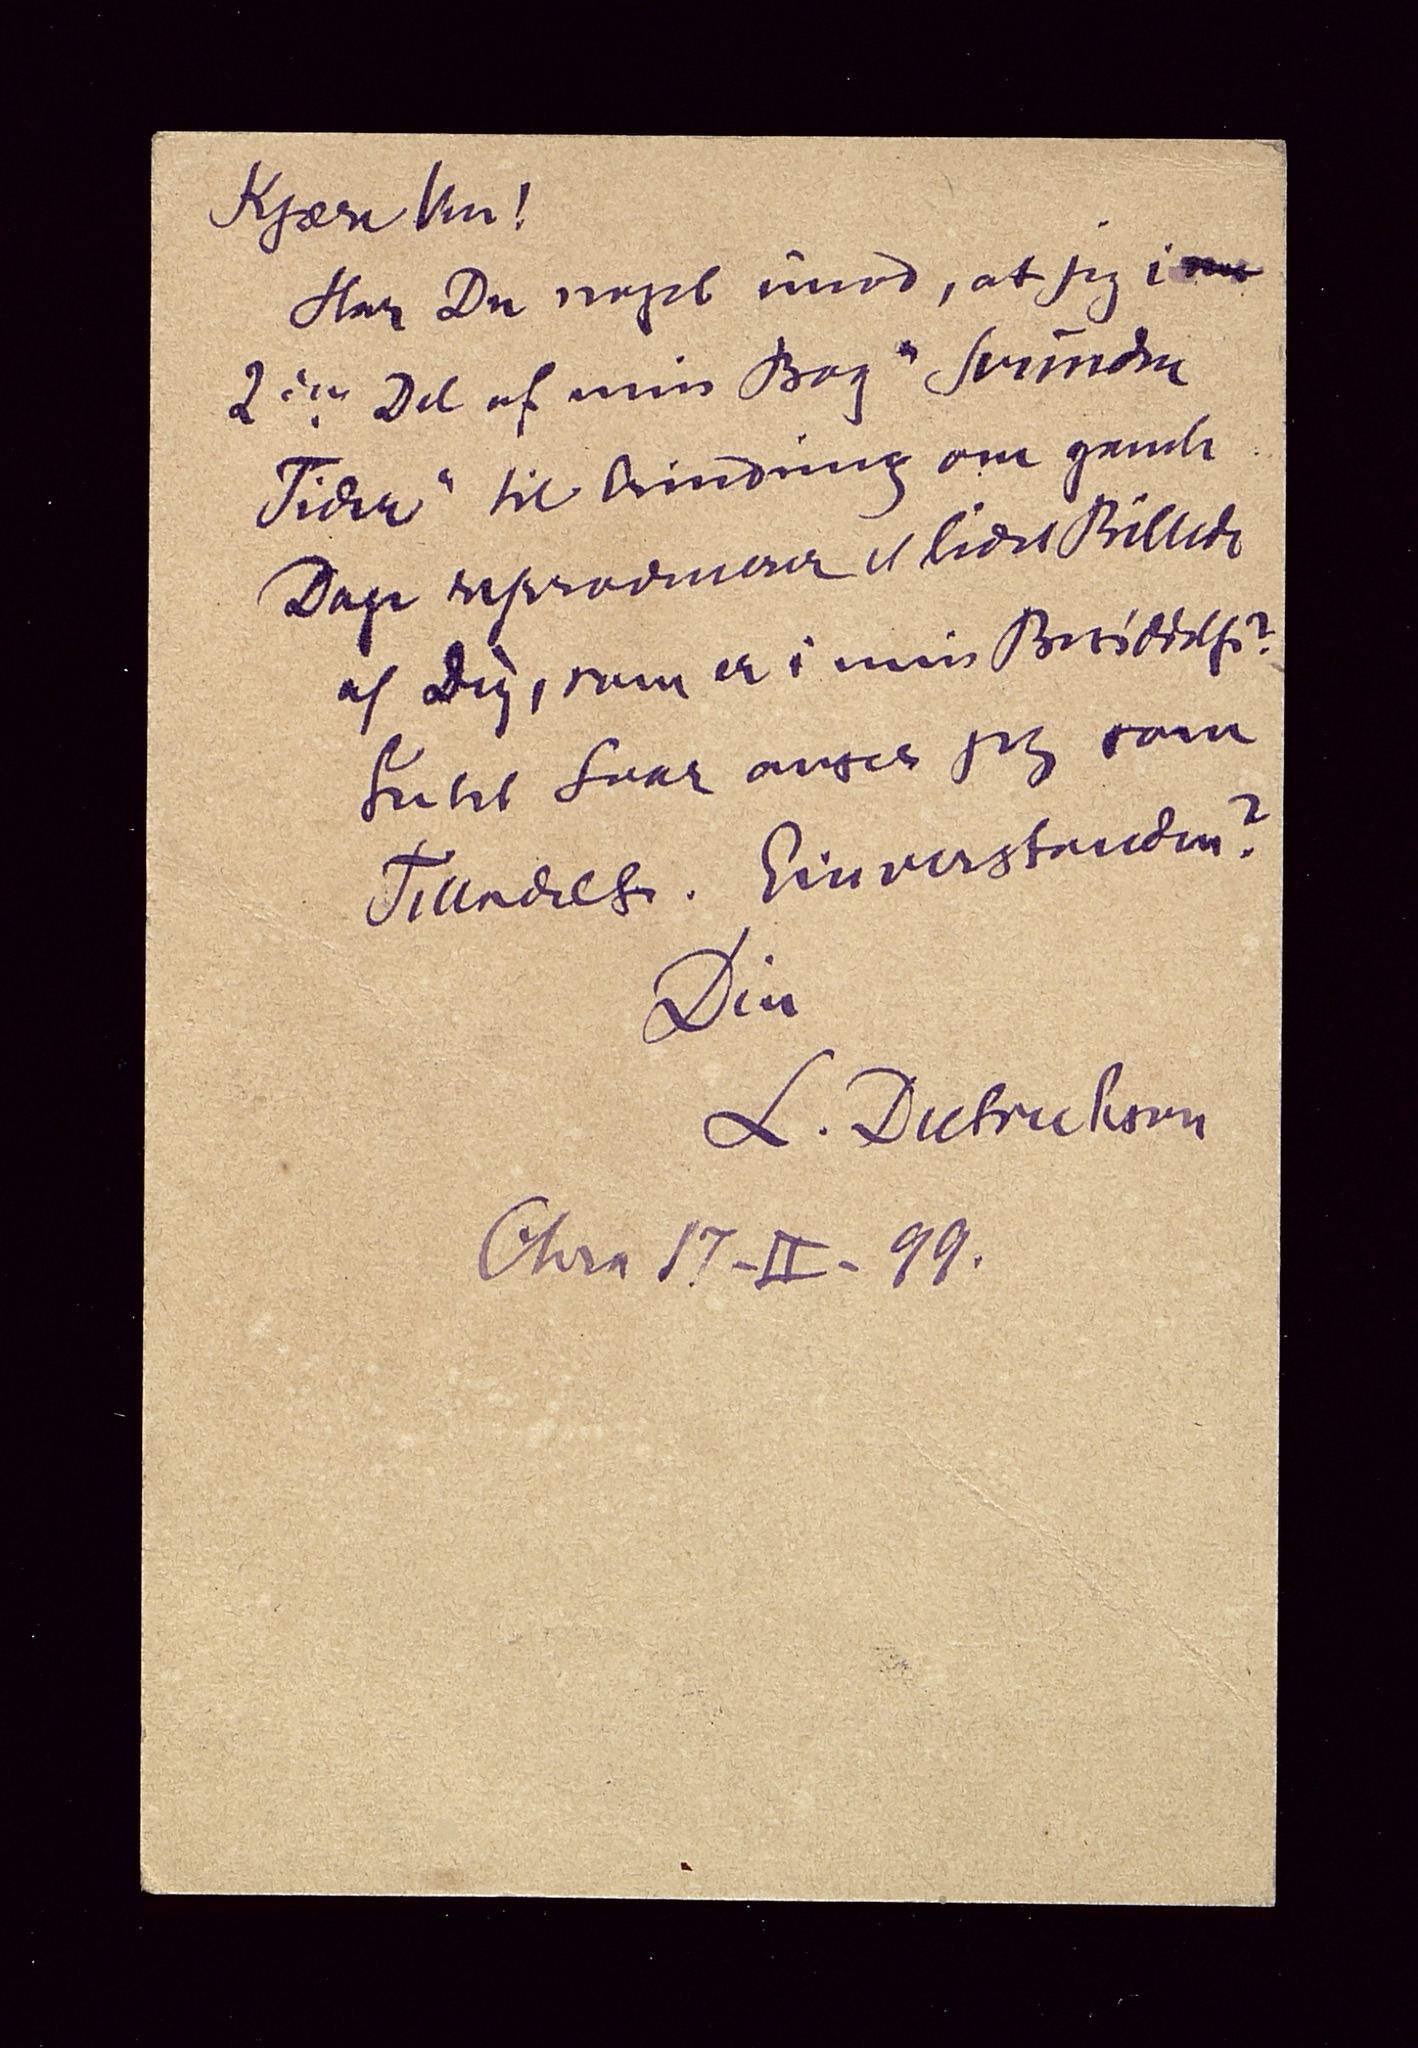 Kjære Ven!
Har Du noget imod, at jeg i
2den Del af min Bog "Svundne
Tider" til Erindring om gamle
Dage reproducerer et lidet Billede
af Dig, som er i min Besiddelse?
Intet Svar anser jeg som
Tilladelse. Einverstanden?
Din
L. Dietrichson
Chra 17-II-99.